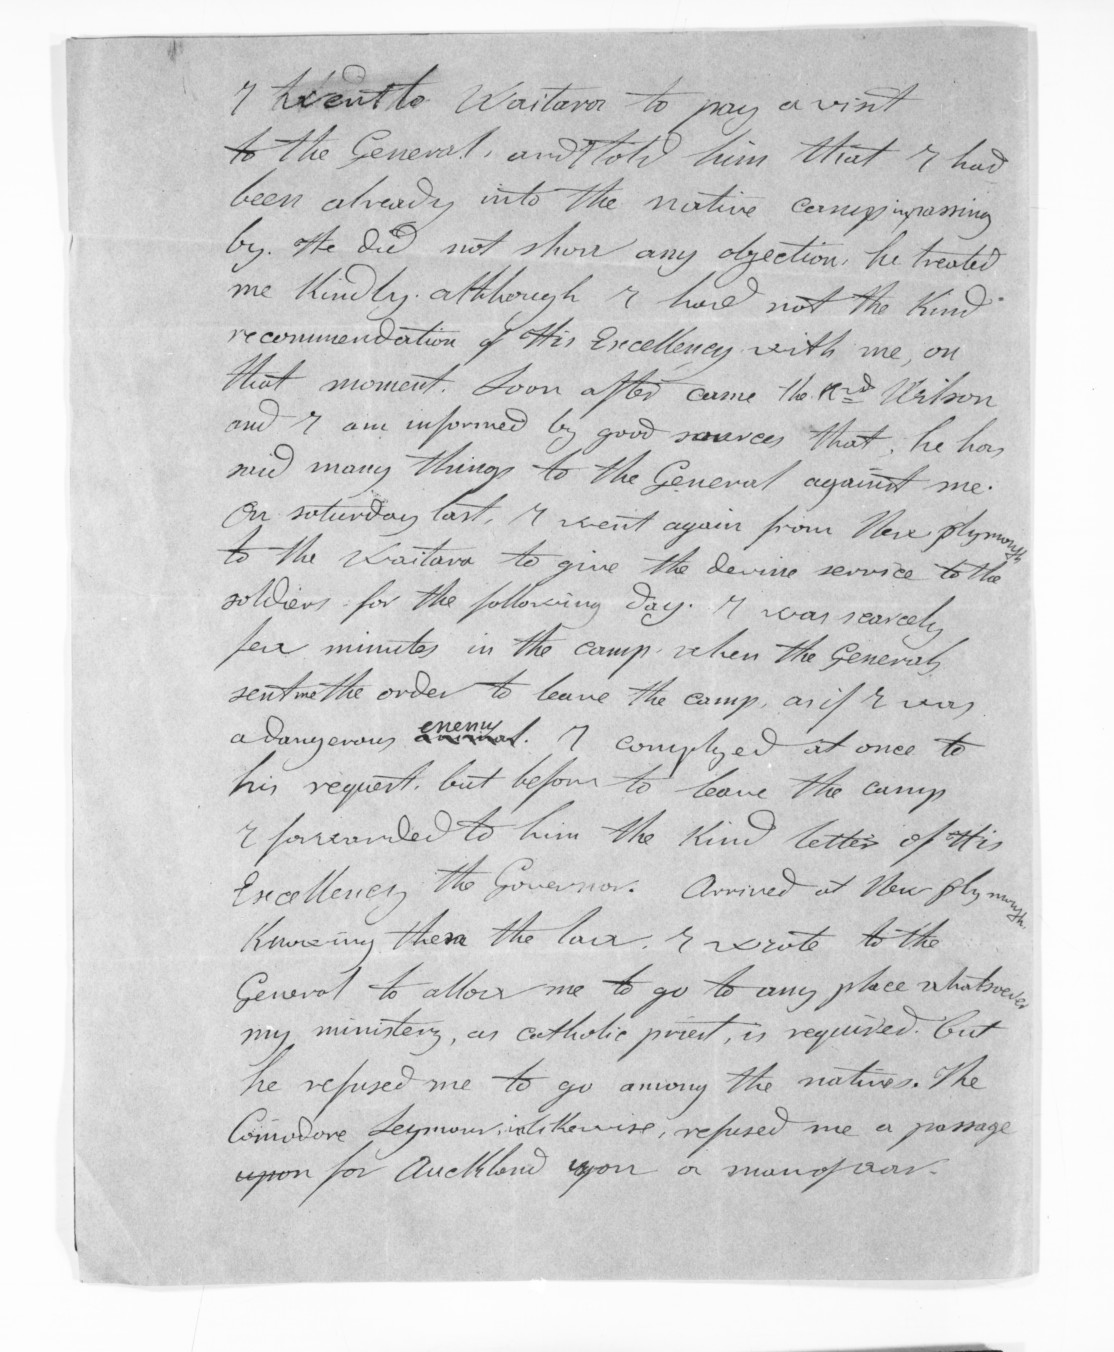 I went to Waitara to pay a visit
to the General, and I told him that I had
been already into the native camps in passing
by. He did not show any objection, he treated
me Kindly. although I had not the Kind
recommendation of His Excellency with me, on
that moment. Soon after came the Rd Wilson
and I am informed by good sources that, he has
said many things to the General against me.
On saturday last, I went again from New plymouth
to the Waitara to give the devine service to the
soldiers for the following day. I was scarcely
few minutes in the camp, when the General,
sent me the order to leave the camp, as if I was
a dangerous animal enemy. I complyed at once to
his request. but before to leave the camp
I forwarded to him the Kind letter of His
Excellency the Governor. Arrived at New plymouth
Knowing then the law. I wrote to the
General to allow me to go to any place whatsoever
my ministery, as catholic priest, is required. but
he refused me to go among the natives. The
Comodore Seymour, likewise, refused me a passage
upon for Auckland upon a man of war.